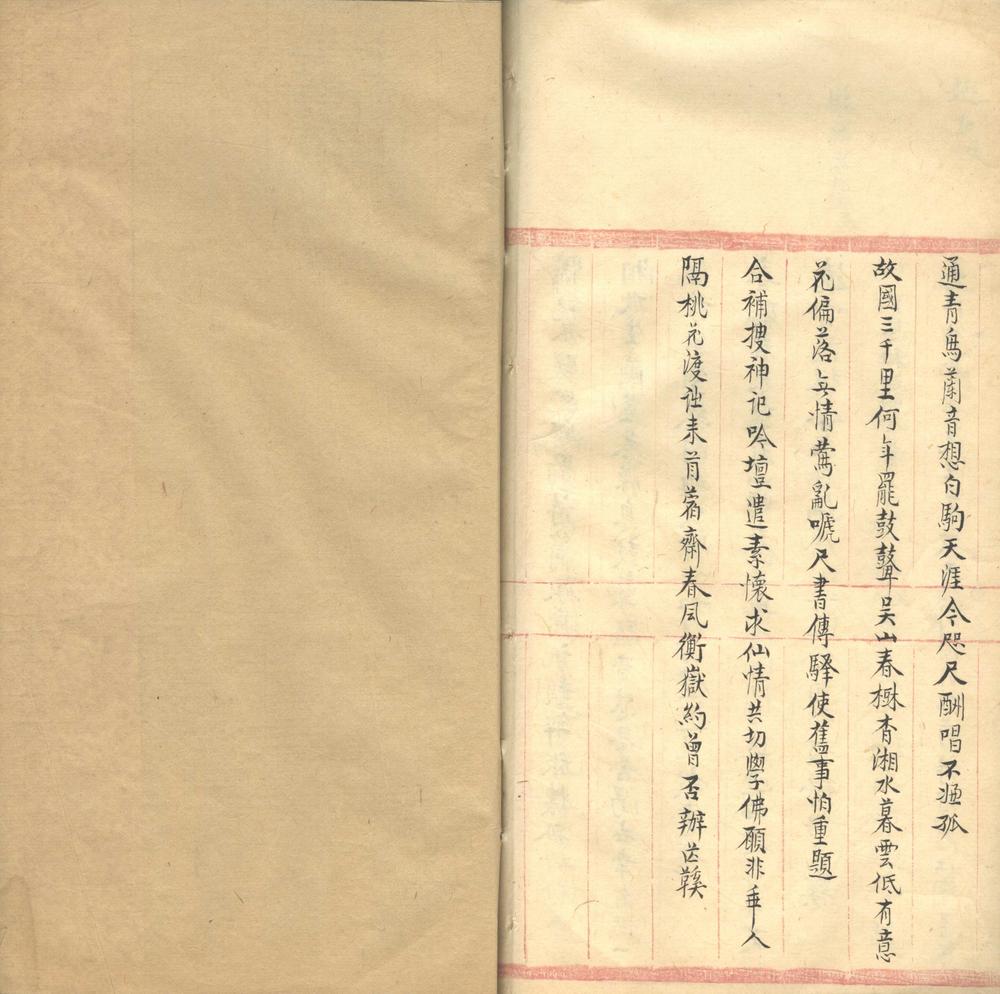 通青鳥蘭音想白駒天涯今咫尺酬唱不獨孤
故國三千里何年罷鼓鼙吳山春樹杳湘水暮雲低有意
花偏落無情鶯亂嗁尺書傳驛使舊事怕重題
合補搜神記吟壇遣素懷求仙情共切學佛願非乖人
隔桃花渡詩来苜蓿齋春風衡嶽約曾否辦芒鞵